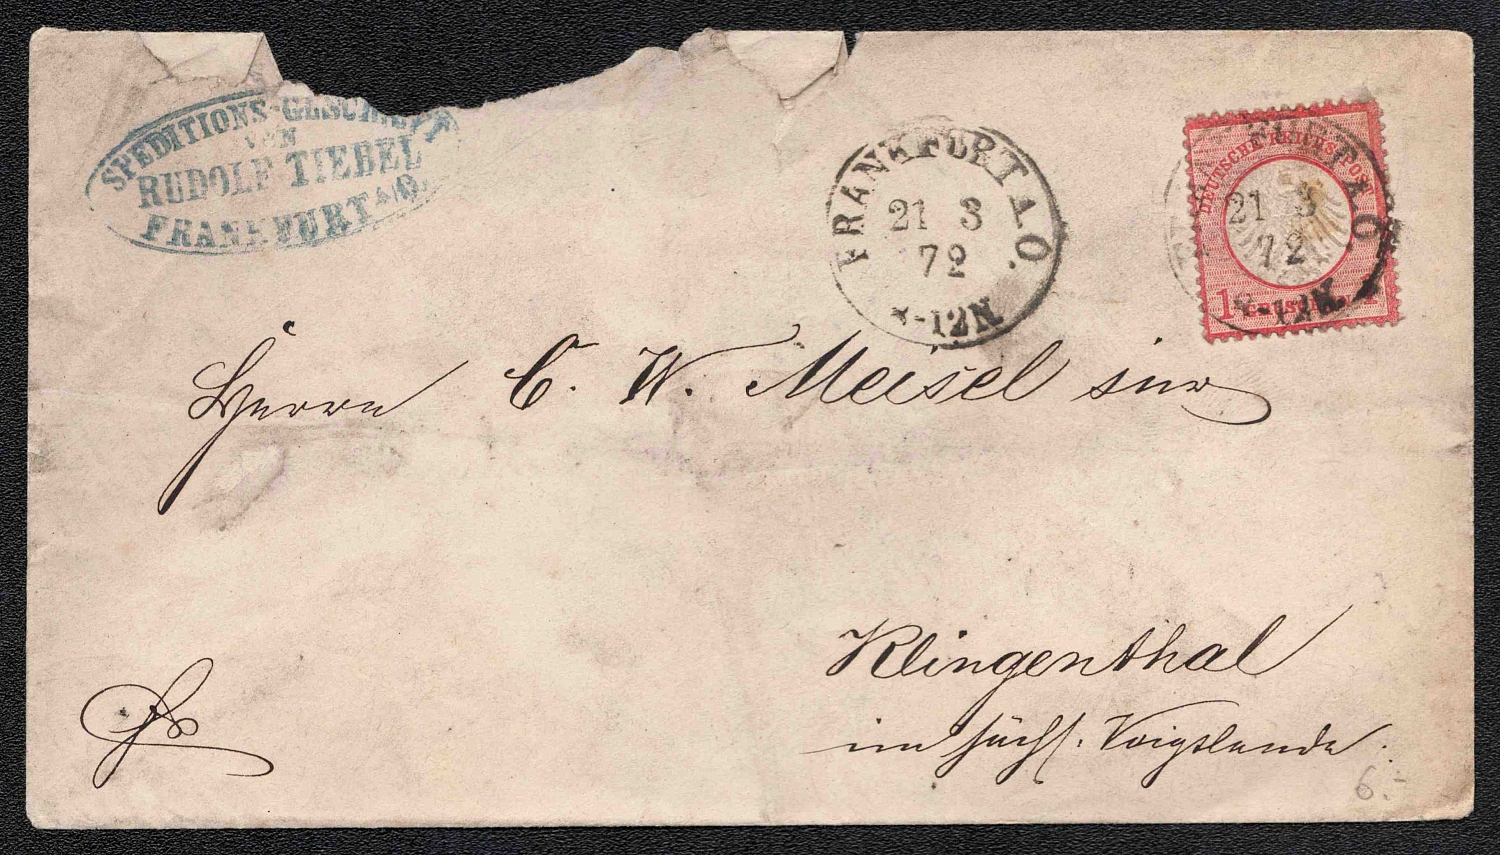 SPEDITIONS-GESCHÄFT
VON
RUDOLF TIEBEL
FRANKFURT A/O.
FRANKFURT A.O.
21 3
72
8-12N
DEUTSCHE REICHS-POST
FRANKFURT A.O.
21 3
72
8-12N
1 1
Herrn C. W. Meisel sen
Klingenthal
im sächs. Voigtlande.
fr
6.-